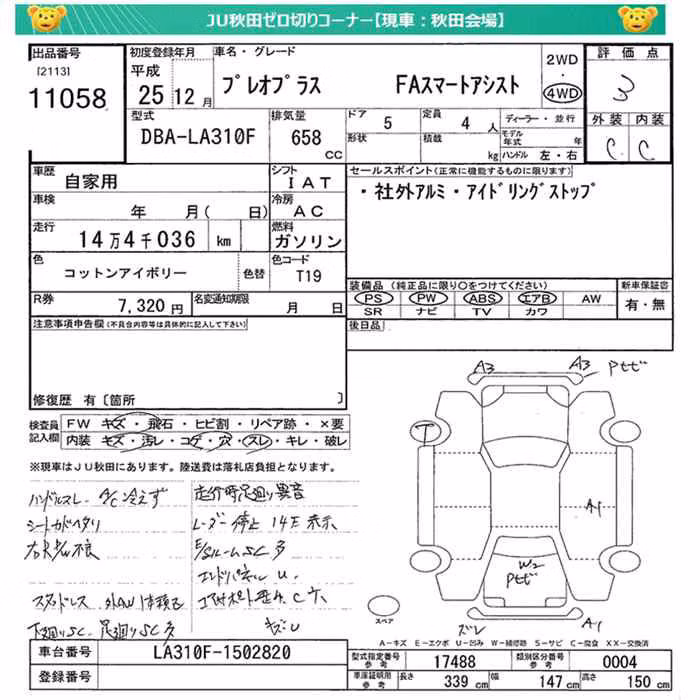 JU秋田ゼロ切りコーナー【現車:秋田会場】
出品番号 初度登録年月 車名・グレード 評価点
[2113] 平成
11058 25年12月 プレオプラス FAスマートアシスト 2WD・4WD 3
型式 排気量 ドア 5 定員 4人 ディーラー・並行 外装 内装
DBA-LA310F 658cc 形状 積載 kg モデル年式 年 C C
ハンドル 左・右
車歴 自家用 シフト IAT セールスポイント(正常に機能するものに限ります)
車検 年 月( 日) 冷房 AC ・社外アルミ・アイドリングストップ
走行 14万4千036 km 燃料 ガソリン
色 コットンアイボリー 色替 色コード T19
R券 7,320円 名変通知期限 月 日
装備品(純正品に限り〇をつけてください) 新車保証書
PS PW ABS エアB AW 有・無
SR ナビ TV カワ
後日品
注意事項申告欄(不具合内容等は具体的に記入して下さい)
修復歴 有〔箇所 〕
検査員記入欄 FW キズ・飛石・ヒビ割・リペア跡・×要
内装 キズ・汚レ・コゲ・穴・スレ・キレ・破レ
※現車はJU秋田にあります。陸送費は落札店負担となります。
ハンドルスレ A/C冷えず
シートカドヘタリ
走行時足廻り異音
レーダー停止 14E表示
E/gルームSC多
エンドパネル U
スタッドレス
下廻りSC 足廻りSC多
キズU
A3 A3 Pセビ
T
A1
W2
Pセビ
ズレ A1
スペア
A-キズ E-エクボ U-凹み W-補修跡 S-サビ C-腐食 XX-交換済
車台番号 LA310F-1502820 型式指定番号 参考 17488 類別区分番号 参考 0004
登録番号 車庫証明用 参考 長さ 339cm 幅 147cm 高さ 150cm